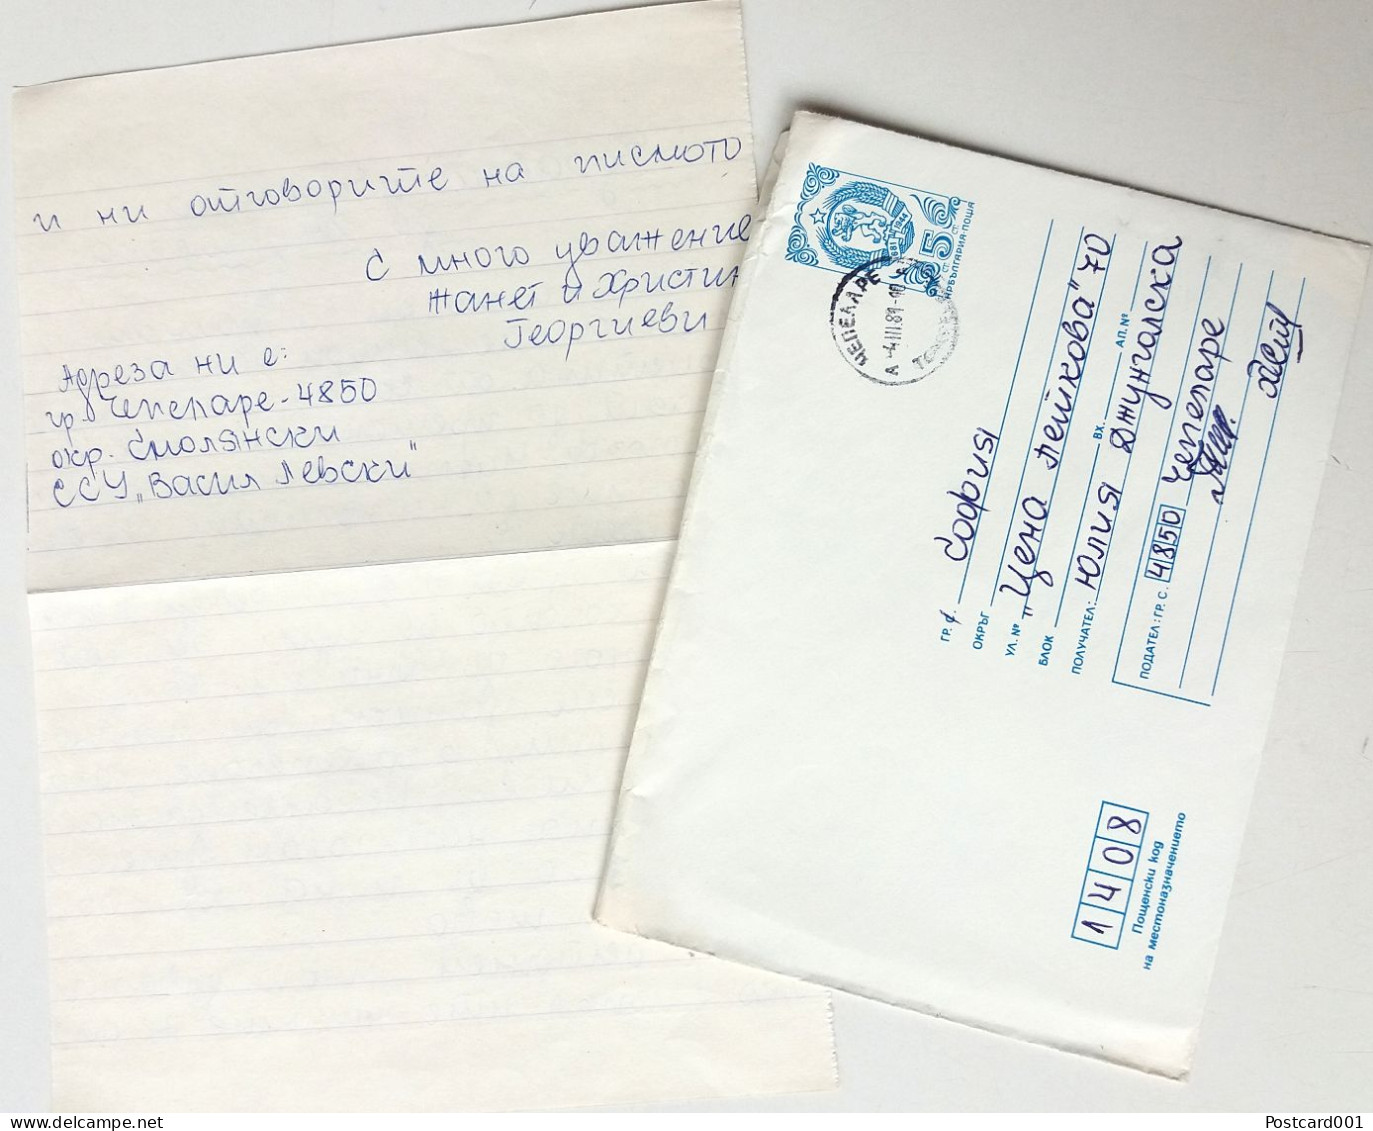 и ни отговорите на писмото
С много уважение
Жанет и Христин
Георгиеви
Адреза ни е:
гр. Чепеларе - 4850
окр. Смолянски
ССУ „Васил Левски"
681 1944
5 СТ
НРБЪЛГАРИЯ·ПОЩА
ЧЕПЕЛАРЕ
А -4.III.81-10
ГР. София
ОКРЪГ
УЛ. № "Цена Пейкова" 70
БЛОК ВХ. АП. №
ПОЛУЧАТЕЛ: Юлия Джунгалска
ПОДАТЕЛ: ГР. С. 4850 Чепеларе
1408
Пощенски код
на местоназначението
Postcard001